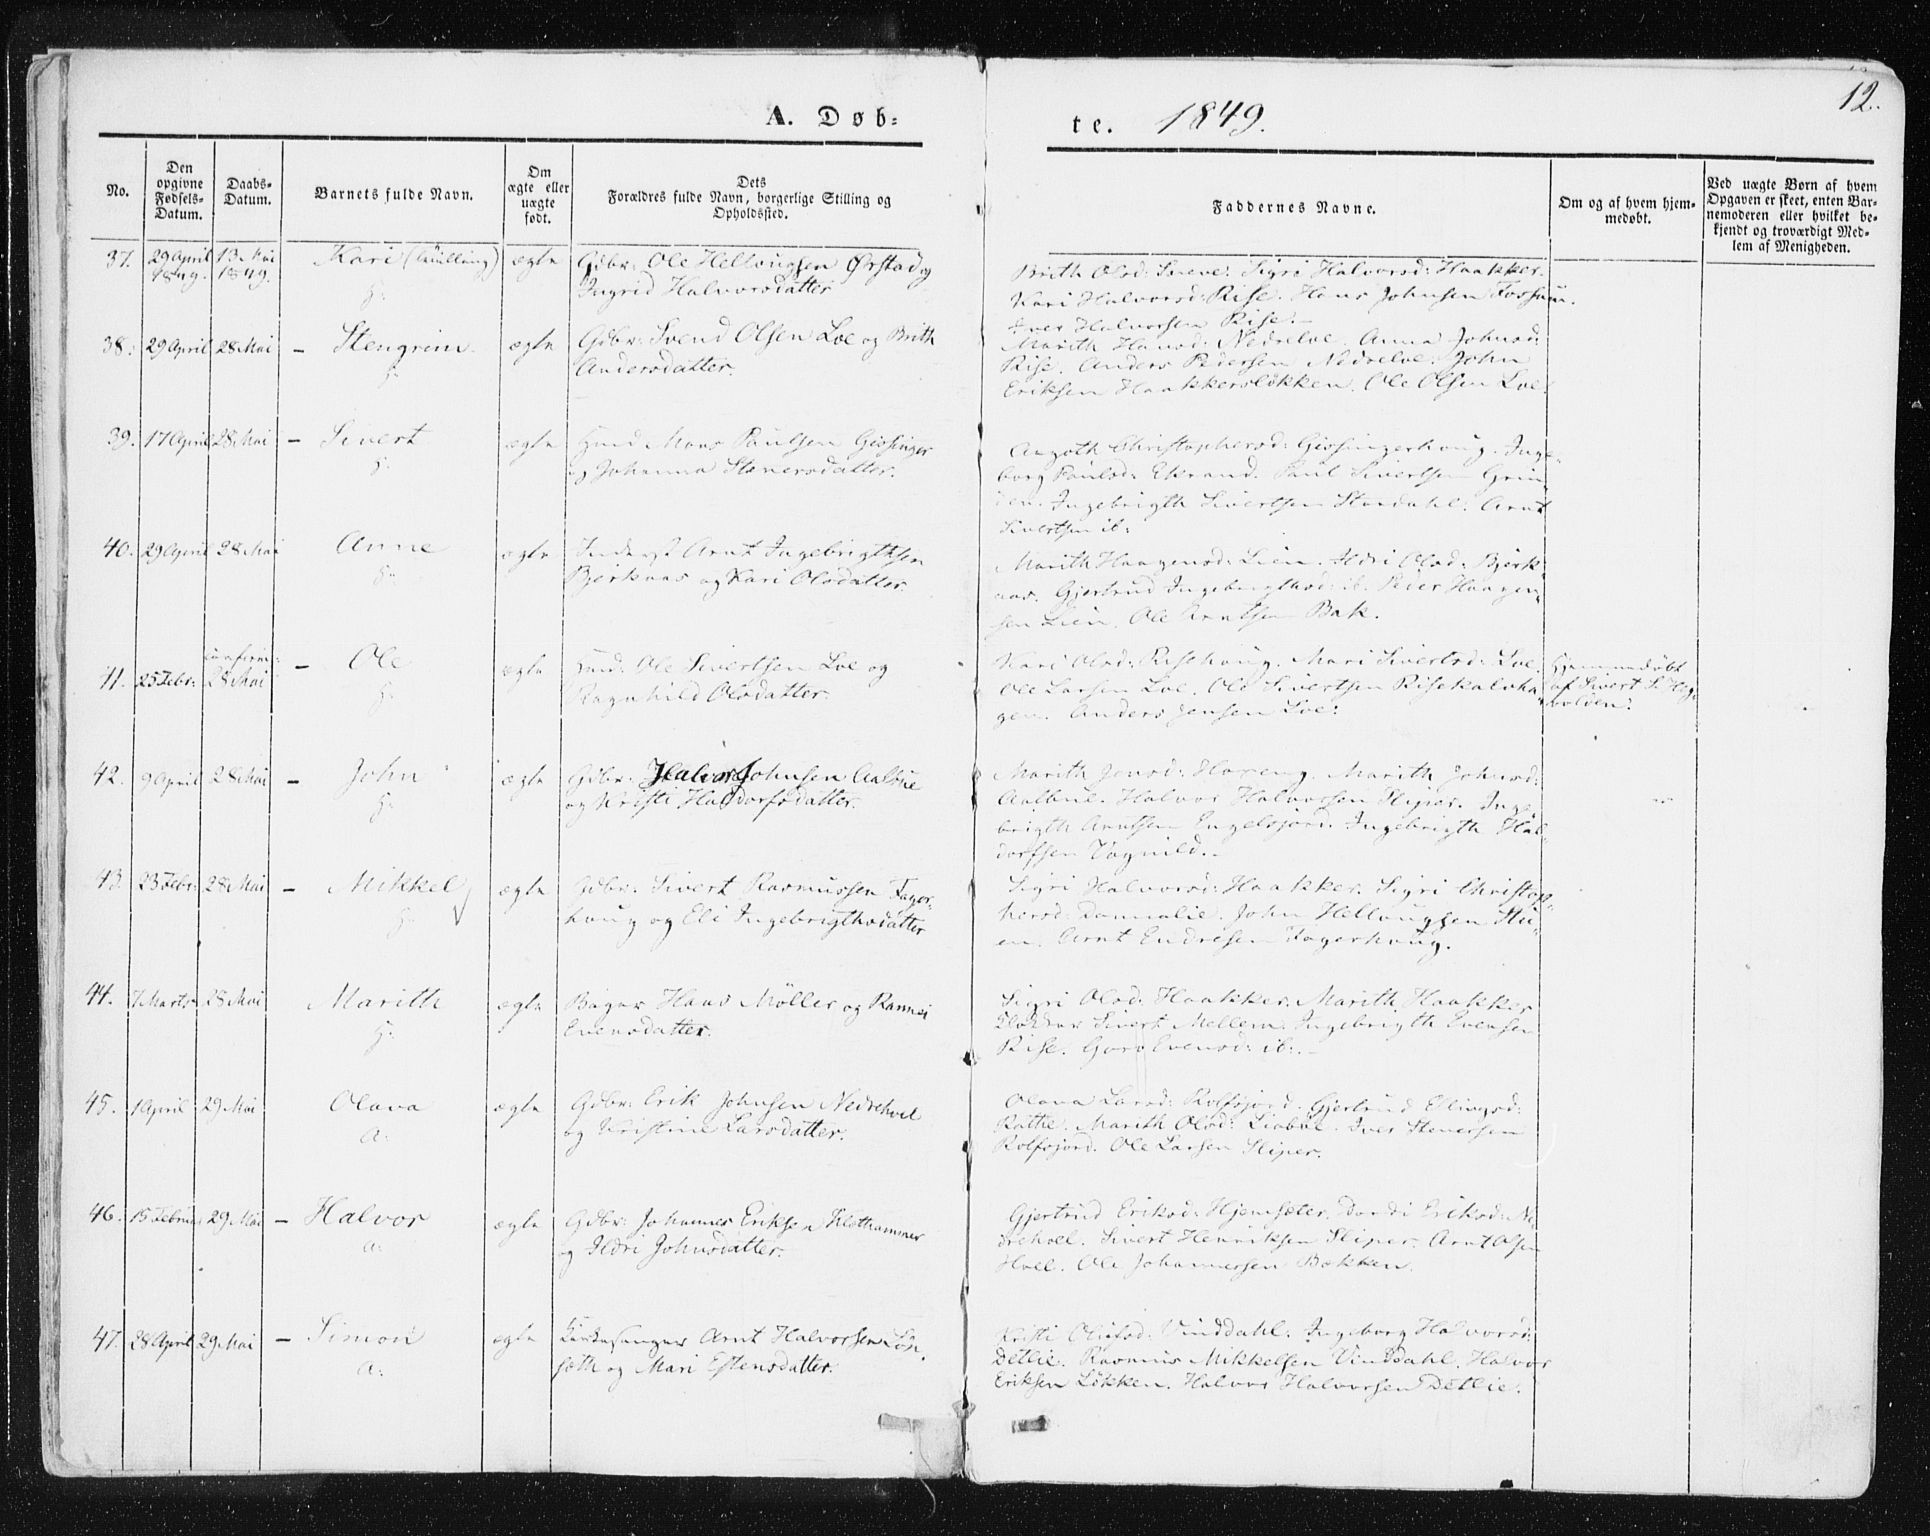 12.
A. Døb-
te. 1849.
No.
Den opgivne Fødsels-Datum.
Daabs-Datum.
Barnets fulde Navn.
Om ægte eller uægte født.
Dets Forældres fulde Navn, borgerlige Stilling og Opholdssted.
Faddernes Navne.
Om og af hvem hjemmedøbt.
Ved uægte Børn af hvem Opgaven er skeet, enten Barnemoderen eller hvilket bekjendt og troværdigt Medlem af Menigheden.
37. 29 April 1849. 13 Mai 1849. Kari (Tvilling) ægte Gdbr: Ole Hellougsen Ørstad og
H: Ingrid Halvorsdatter
Brith Olsd: Sneve. Sigri Halvorsd: Haakker.
Kari Halvorsd: Rise. Hans Johnsen Fossum.
Iver Halvorsen Rise.
38: 29 April 28 Mai – Stengrim. ægte Gdbr: Svend Olsen Loe og Brith
H: Andersdatter.
Marith Hansd: Nedreloe. Anna Johnsd:
Rise. Anders Pedersen Nedreloe. John
Eriksen Haakkersløkken. Ole Olsen Loe.
39. 17 April 28 Mai – Sivert ægte Huusmd Mons Paulsen Gissinger
H: og Johanna Stenersdatter.
Angoth Christophersd: Gissingerhoug. Inge-
borg Paulsd: Ekrand. Paul Sivertsen Grin-
den. Ingebrigth Sivertsen Stendahl. Arnt
Sivertsen ib:
40. 29 April 28 Mai Anne ægte Inderst Arnt Ingebrigthsen
H: Bjerkaas og Kari Olsdatter.
Marith Haagensd: Lien. Ildri Olsd: Bjerk-
aas. Gjertrud Ingebrigthsd: ib. Peder Haagen-
sen Lien. Ole Arntsen Bak.
41. 25 Febr: confirm: 28 Mai – Ole ægte Huusmd: Ole Sivertsen Loe og
H: Ragnhild Olsdatter.
Kari Olsd: Risehoug. Mari Sivertsd: Loe.
Ole Larsen Loe. Ole Sivertsen Risekalvha-
gen. Anders Jensen Loe.
Hjemmedøbt
af Sivert S. Hage-
volden.
42. 9 April 28 Mai – John ægte Gdbr: Halvor Johnsen Aalbue
H: og Kristi Haldorfsdatter.
Marith Jensd: Haxeng. Marith Johnsd:
Aalbue. Halvor Halvorsen Sliper. Inge-
brigth Arntsen Engelsjord. Ingebrigth Hal-
dorfsen Vognild.
43. 23 Febr: 28 Mai – Mikkel ægte Gdbr: Sivert Rasmussen Fager-
H: houg og Eli Ingebrigthsdatter
Sigri Halvorsd: Haakker. Sigri Christop-
hersd: Donnalie. John Hellougsen Stu-
en. Arnt Endresen Fagerhoug.
44. 7 Marts 28 Mai Marith ægte Bager Hans Möller og Rannei
H: Evensdatter.
Sigri Olsd: Haakker. Marith Haakker
Klokker Sivert Mellem. Ingebrigth Evensen
Rise. Goro Evensd: ib:
45. 1 April 29 Mai Olava ægte Gdbr: Erik Johnsen Nedrehoel
A: og Kristine Larsdatter.
Olava Larsd: Rolfsjord. Gjertrud Ellingsd:
Rathe. Marith Olsd: Liabue. Iver Stenersen
Rolfsjord. Ole Larsen Sliper.
46. 15 Februar 29 Mai – Halvor ægte Gdbr: Johannes Eriksen Klethammer
A: og Ildri Johnsdatter.
Gjertrud Eriksd: Hjemsæter. Dordi Eriksd: Ne-
drehoel. Sivert Henriksen Sliper. Arnt Olsen
Hoel. Ole Johannessen Bakken.
47. 28 April 29 Mai – Simon ægte Kirkesanger Arnt Halvorsen Løn-
A: sæth og Mari Estensdatter.
Kristi Olufsd: Vinddahl. Ingeborg Halvorsd:
Detlie. Rasmus Mikkelsen Vinddahl. Halvor
Eriksen Løkken. Halvor Halvorsen Detlie.